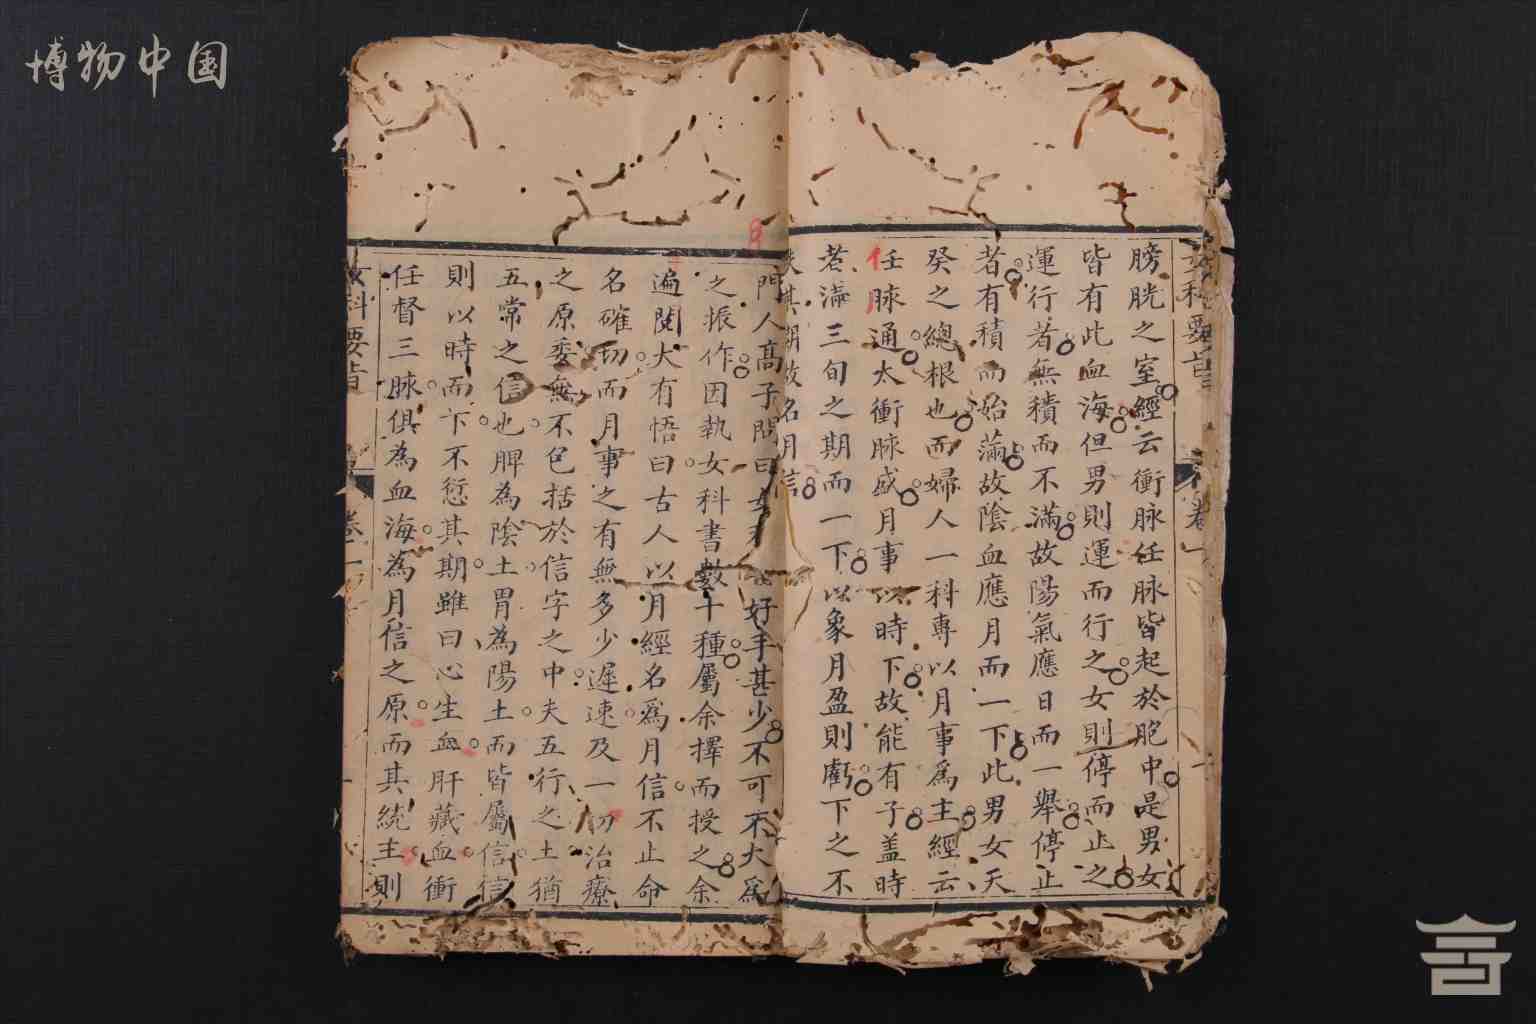 博物中国
女科要旨
卷一
膀胱之室經云衝脉任脉皆起於胞中是男女
皆有此血海但男則運而行之女則停而止之
運行者無積而不滿故陽氣應日而一舉停止
者有積而始滿故陰血應月而一下此男女天
癸之總根也而婦人一科專以月事爲主經云
任脉通太衝脉盛月事以時下故能有子蓋時
若滿三旬之期而一下以象月盈則虧下之不
失其期故名月信
門人髙子問曰女科好手甚少不可不大爲
之振作因執女科書數十種屬余擇而授之余
遍閱大有悟曰古人以月經名爲月信不止命
名確切而月事之有無多少遲速及一切治療
之原委無不包括於信字之中夫五行之土猶
五常之信也脾為陰土胃為陽土而皆屬信信
則以時而下不愆其期雖曰心生血肝藏血衝
任督三脉俱為血海為月信之原而其統主則
女科要旨
卷一